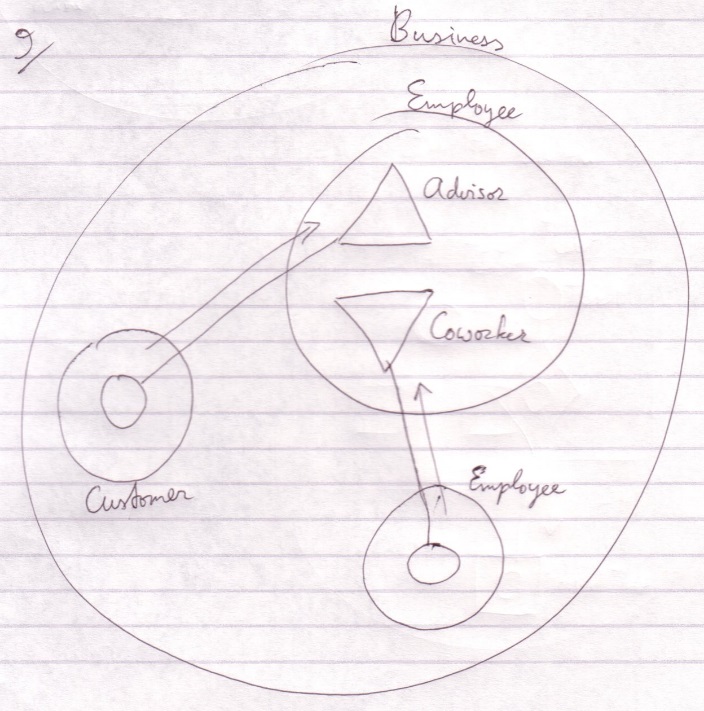 9/
Business
Employee
Advisor
Coworker
Customer
Employee